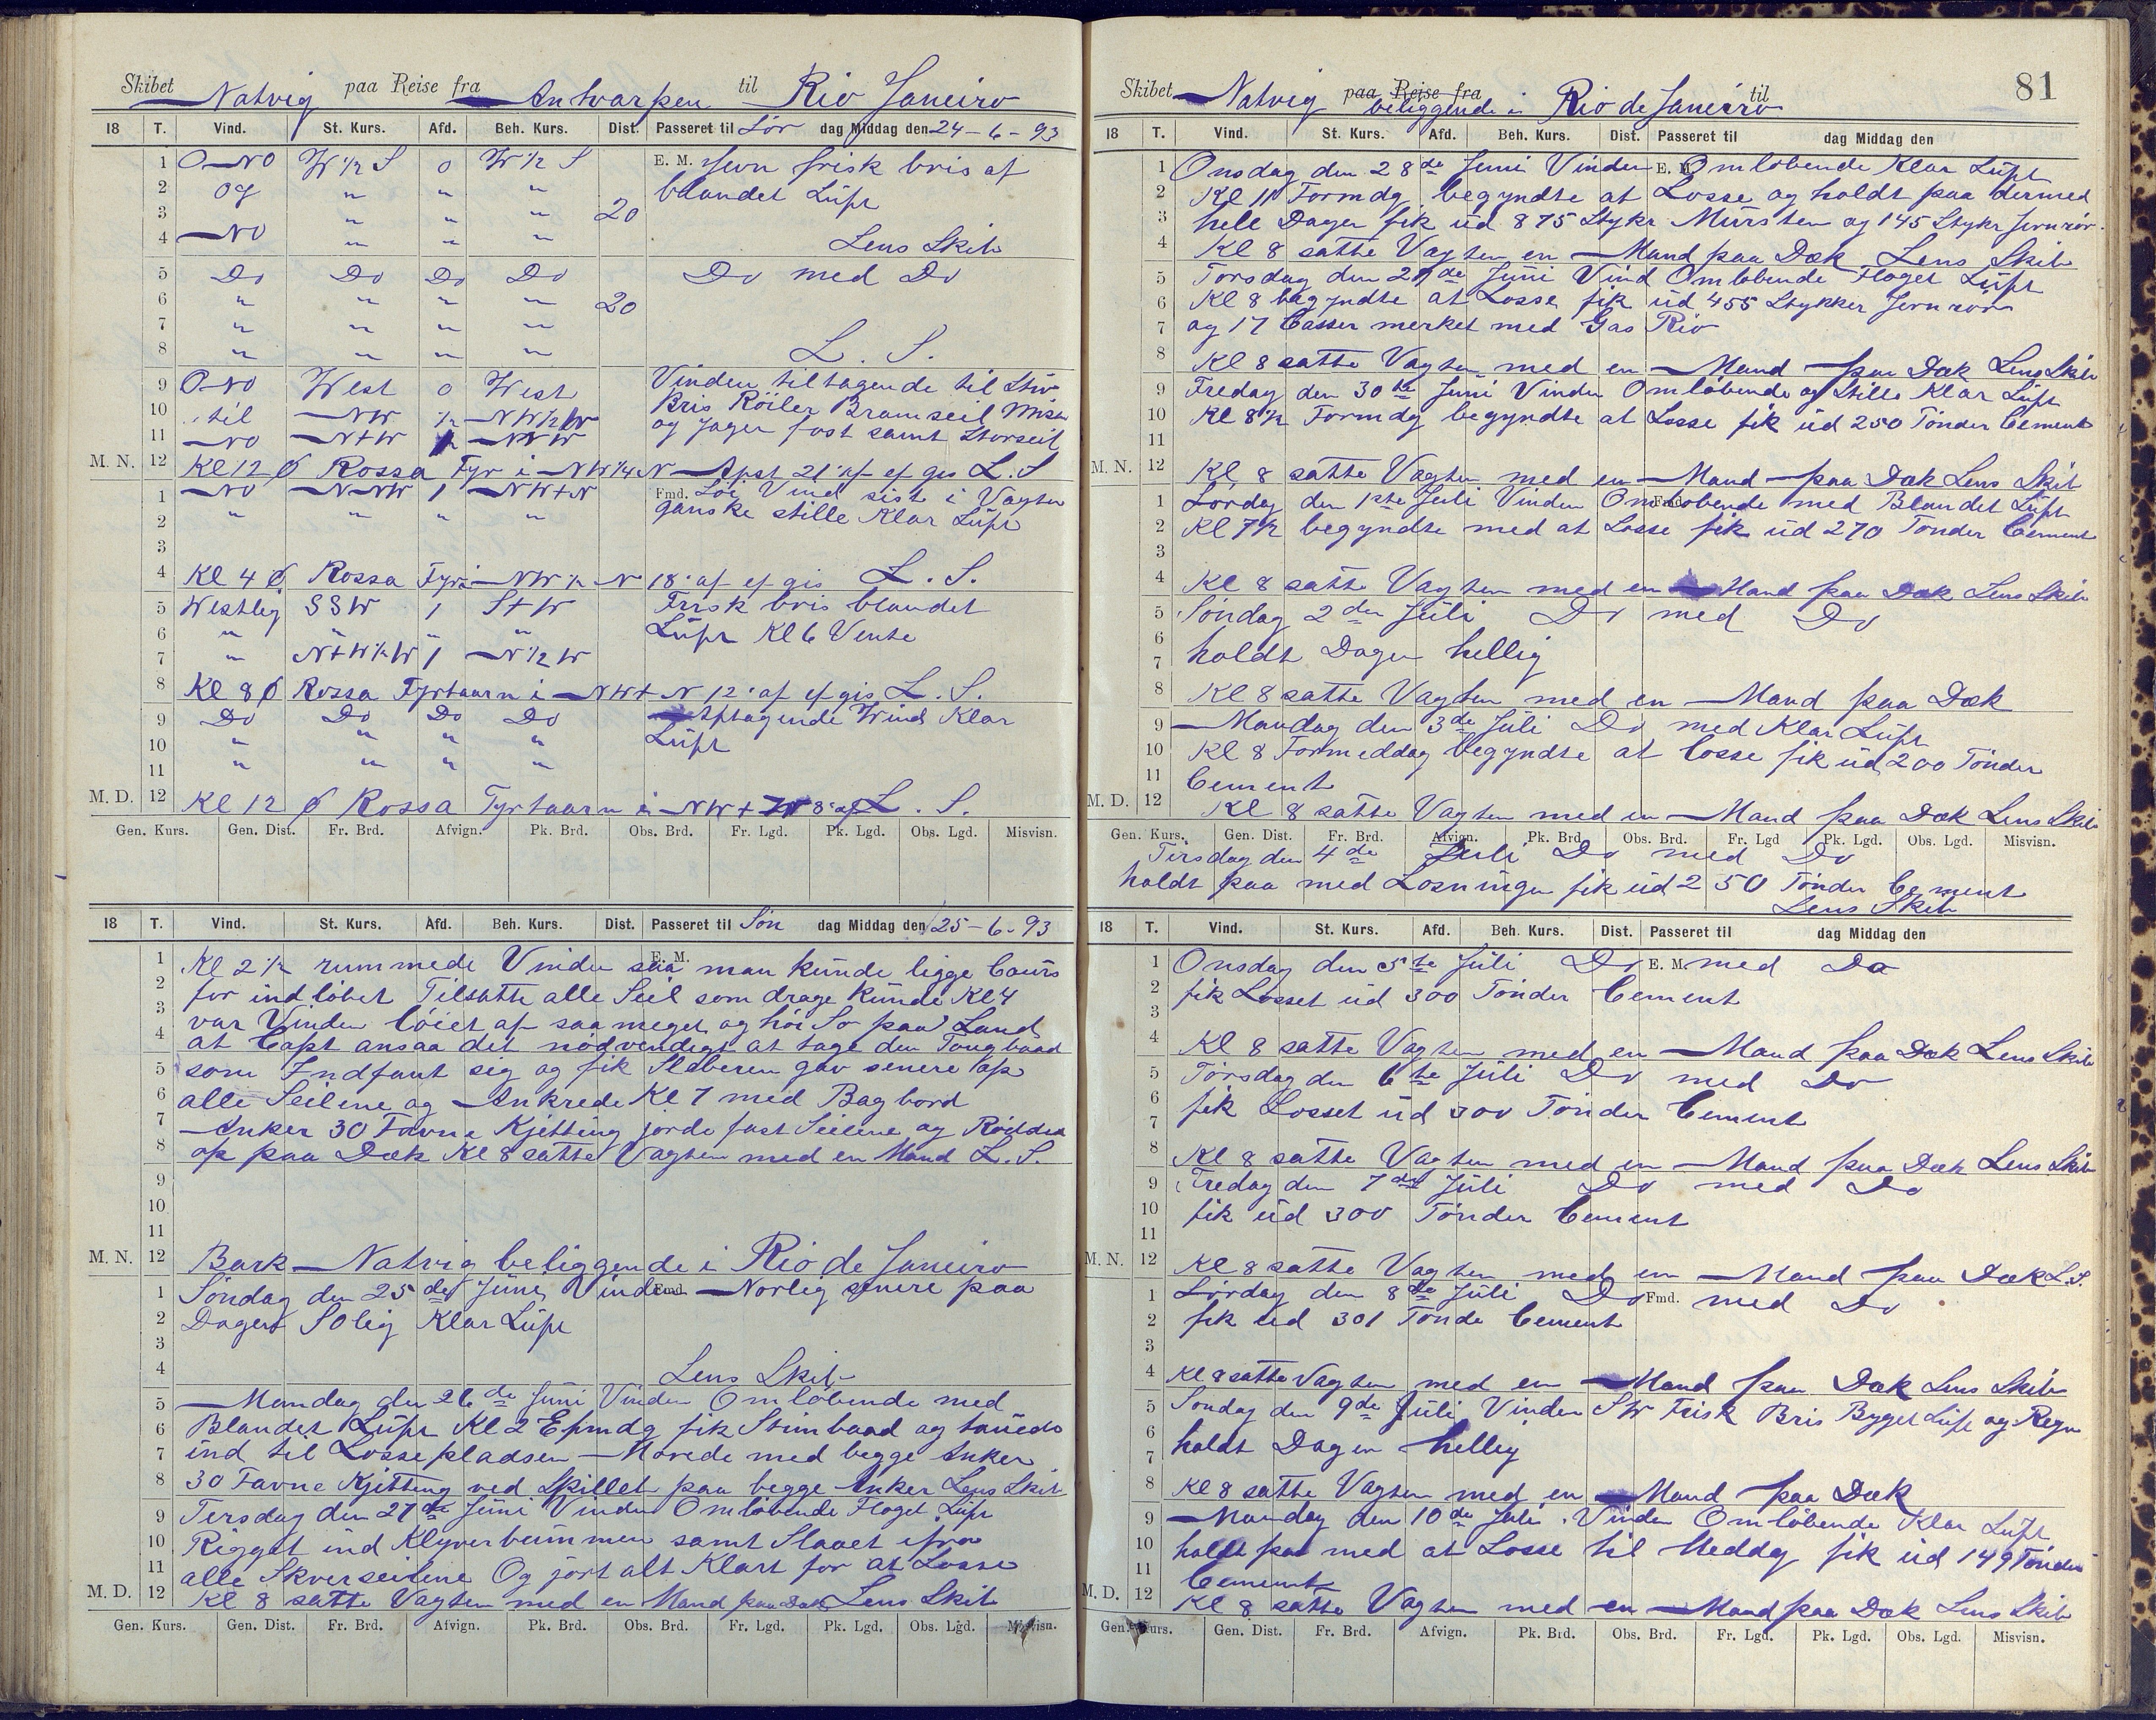 Skibet Natvig paa Reise fra Antvarpen til Rio Janeiro
18 T. Vind. St. Kurs. Afd. Beh. Kurs. Dist. Passeret til Lör dag Middag den 24-6-93
1 O-NO W 1/2 S 0 W 1/2 S E. M. Jevn frisk bris af
2 og " " " blandet Lüft
3 " " " 20
4 NO " " " Lens Skib
5 Do Do Do Do Do med Do
6 " " " " 20
7 " " " "
8 " " " " L. S.
9 O-NO West 0 West Vinden tiltagende til Stiv
10 til NW 1/2 NW 1/2 W Bris Röiler Bramseil Misan
11 NO N+W NNW og Jager fast samt Storseil
M. N. 12 Kl 12 Ø Rossa Fyr i NW 1/4 N Afst 21' af ef gis L. S
1 NO N-NW 1 NW+N Fmd. Löi Vind sist i Vagten
2 " " " " ganske stille Klar Lüft
3
4 Kl 4 Ø Rossa Fyr i NW 1/2 N 18' af ef gis L. S.
5 Westlig SSW 1 S+W Frisk bris blandet
6 " " " " Lüft Kl 6 Vente
7 " N+W 1/2 W 1 N 1/2 W
8 Kl 8 Ø Rossa Fyrtaarn i NW+N 12' af ef gis L. S.
9 Do Do Do Do Aftagende Wind Klar
10 " " " " Lüft
11 " " " "
M. D. 12 Kl 12 Ø Rossa Fyrtaarn i NW+W 8' af L. S.
Gen. Kurs. Gen. Dist. Fr. Brd. Afvign. Pk. Brd. Obs. Brd. Fr. Lgd. Pk. Lgd. Obs. Lgd. Misvisn.
18 T. Vind. St. Kurs. Afd. Beh. Kurs. Dist. Passeret til Sön dag Middag den 25-6-93
E. M.
1 Kl 2 1/2 rummede Vinden saa man kunde ligge Cours
2 for indlöbet Tilsatte alle Seil som drage kunde Kl 4
3 var Vinden löiet af saa meget og höi Sö paa Land
4 at Capt ansaa det nödvendigt at tage den Tougbaad
5 som Indfant sig og fik Slæberen gav senere op
6 alle Seilene og Ankrede Kl 7 med Bagbord
7 Anker 30 Favne Kjetting jorde fast Seilene og Röidda
8 op paa Dæk Kl 8 satte Vagten med en Mand L. S.
9
10
11
M. N. 12 Bark Natvig beliggende i Rio de Janeiro
1 Söndag den 25 de Jüni Vinden Fmd. Norlig senere paa
2 Dagen SOlig Klar Lüft
3
4 Lens Skib
5 Mandag den 26 de Jüni Vinden Omlöbende med
6 Blandet Lüft Kl 2 Efmdg fik Stimbaad og tauedes
7 ind til Lossepladsen Morede med begge Anker
8 30 Favne Kjetting ved Skillet paa begge Anker Lens Skib
9 Tersdag den 27 de Jüni Vinden Omlöbende Floget Lüft
10 Rigget ind Klyverbummen samt Slaaet ifra
11 alle Skverseilene Og jort alt Klart for at Losse
M. D. 12 Kl 8 satte Vagten med en Mand paa Dæk Lens Skib
Gen. Kurs. Gen. Dist. Fr. Brd. Afvign. Pk. Brd. Obs. Brd. Fr. Lgd. Pk. Lgd. Obs. Lgd. Misvisn.
81
Skibet Natvig paa Reise fra beliggende i Rio de Janeiro til
18 T. Vind. St. Kurs. Afd. Beh. Kurs. Dist. Passeret til dag Middag den
1 Onsdag den 28 de Juni Vinden E. M. Omlobende Klar Lüft
2 Kl 11 Formdg. begyndte at Losse og holdt paa dermed
3 hele Dagen fik üd 875 Stykr Mürsten og 145 Stykr Jernrör
4 Kl 8 satte Vagten en Mand paa Dæk Lens Skib
5 Torsdag den 29 de Jüni Vind Omlöbende Floget Lüft
6 Kl 8 begyndte at Losse fik üd 455 Stykker Jernrör
7 og 17 Casser merket med Gas Rio
8 Kl 8 satte Vagten med en Mand paa Dæk Lens Skib
9 Fredag den 30 te Jüni Vinden Omlöbende og Stille Klar Lüft
10 Kl 8 1/2 Formdg begyndte at Losse fik üd 250 Tönder Cement
11
M. N. 12 Kl 8 satte Vagten med en Mand paa Dæk Lens Skib
1 Lördag den 1ste Juli Vinden Omlobende Fmd. med Blandet Lüft
2 Kl 7 1/2 begyndte med at Losse fik üd 270 Tönder Cement
3
4 Kl 8 satte Vagten med en Mand paa Dæk Lens Skib
5 Söndag 2 den Jüli Do med Do
6 holdt Dagen hellig
7
8 Kl 8 satte Vagten med en Mand paa Dæk
9 Mandag den 3 de Jüli Do med Klar Lüft
10 Kl 8 Formeddag begyndte at Losse fik üd 200 Tönder
11 Cement
M. D. 12 Kl 8 satte Vagten med en Mand paa Dæk Lens Skib
Gen. Kurs. Gen. Dist. Fr. Brd. Afvign. Pk. Brd. Obs. Brd. Fr. Lgd Pk. Lgd. Obs. Lgd. Misvisn.
Tirsdag den 4 de Juli Do med Do
holdt paa med Losningen fik üd 250 Tönder Cement
Lens Skib
18 T. Vind. St. Kurs. Afd. Beh. Kurs. Dist. Passeret til dag Middag den
1 Onsdag den 5 te Jüli Do E. M. med Do
2 fik Losset üd 300 Tönder Cement
3
4 Kl 8 satte Vagten med en Mand paa Dæk Lens Skib
5 Törsdag den 6 te Jüli Do med Do
6 fik Losset üd 300 Tönder Cement
7
8 Kl 8 satte Vagten med en Mand paa Dæk Lens Skib
9 Fredag den 7 de Jüli Do med Do
10 fik üd 300 Tönder Cement
11
M. N. 12 Kl 8 satte Vagten med en Mand paa Dæk L. S.
1 Lördag den 8 de Jüli Do Fmd. med Do
2 fik üd 301 Tönde Cement
3
4 Kl 8 satte Vagten med en Mand paa Dæk Lens Skib
5 Söndag den 9 de Jüli Vinden SW Frisk Bris Byget Lüft og Regn
6 holdt Dagen hellig
7
8 Kl 8 satte Vagten med en Mand paa Dæk
9 Mandag den 10 de Jüli Vinden Omlöbende Klar Lüft
10 holdt paa med at Losse til Meddg fik üd 149 Tönder
11 Cement
M. D. 12 Kl 8 satte Vagten med en Mand paa Dæk Lens Skib
Gen. Kurs. Gen. Dist. Fr. Brd. Afvign. Pk. Brd. Obs. Brd. Fr. Lgd. Pk. Lgd. Obs. Lgd. Misvisn.